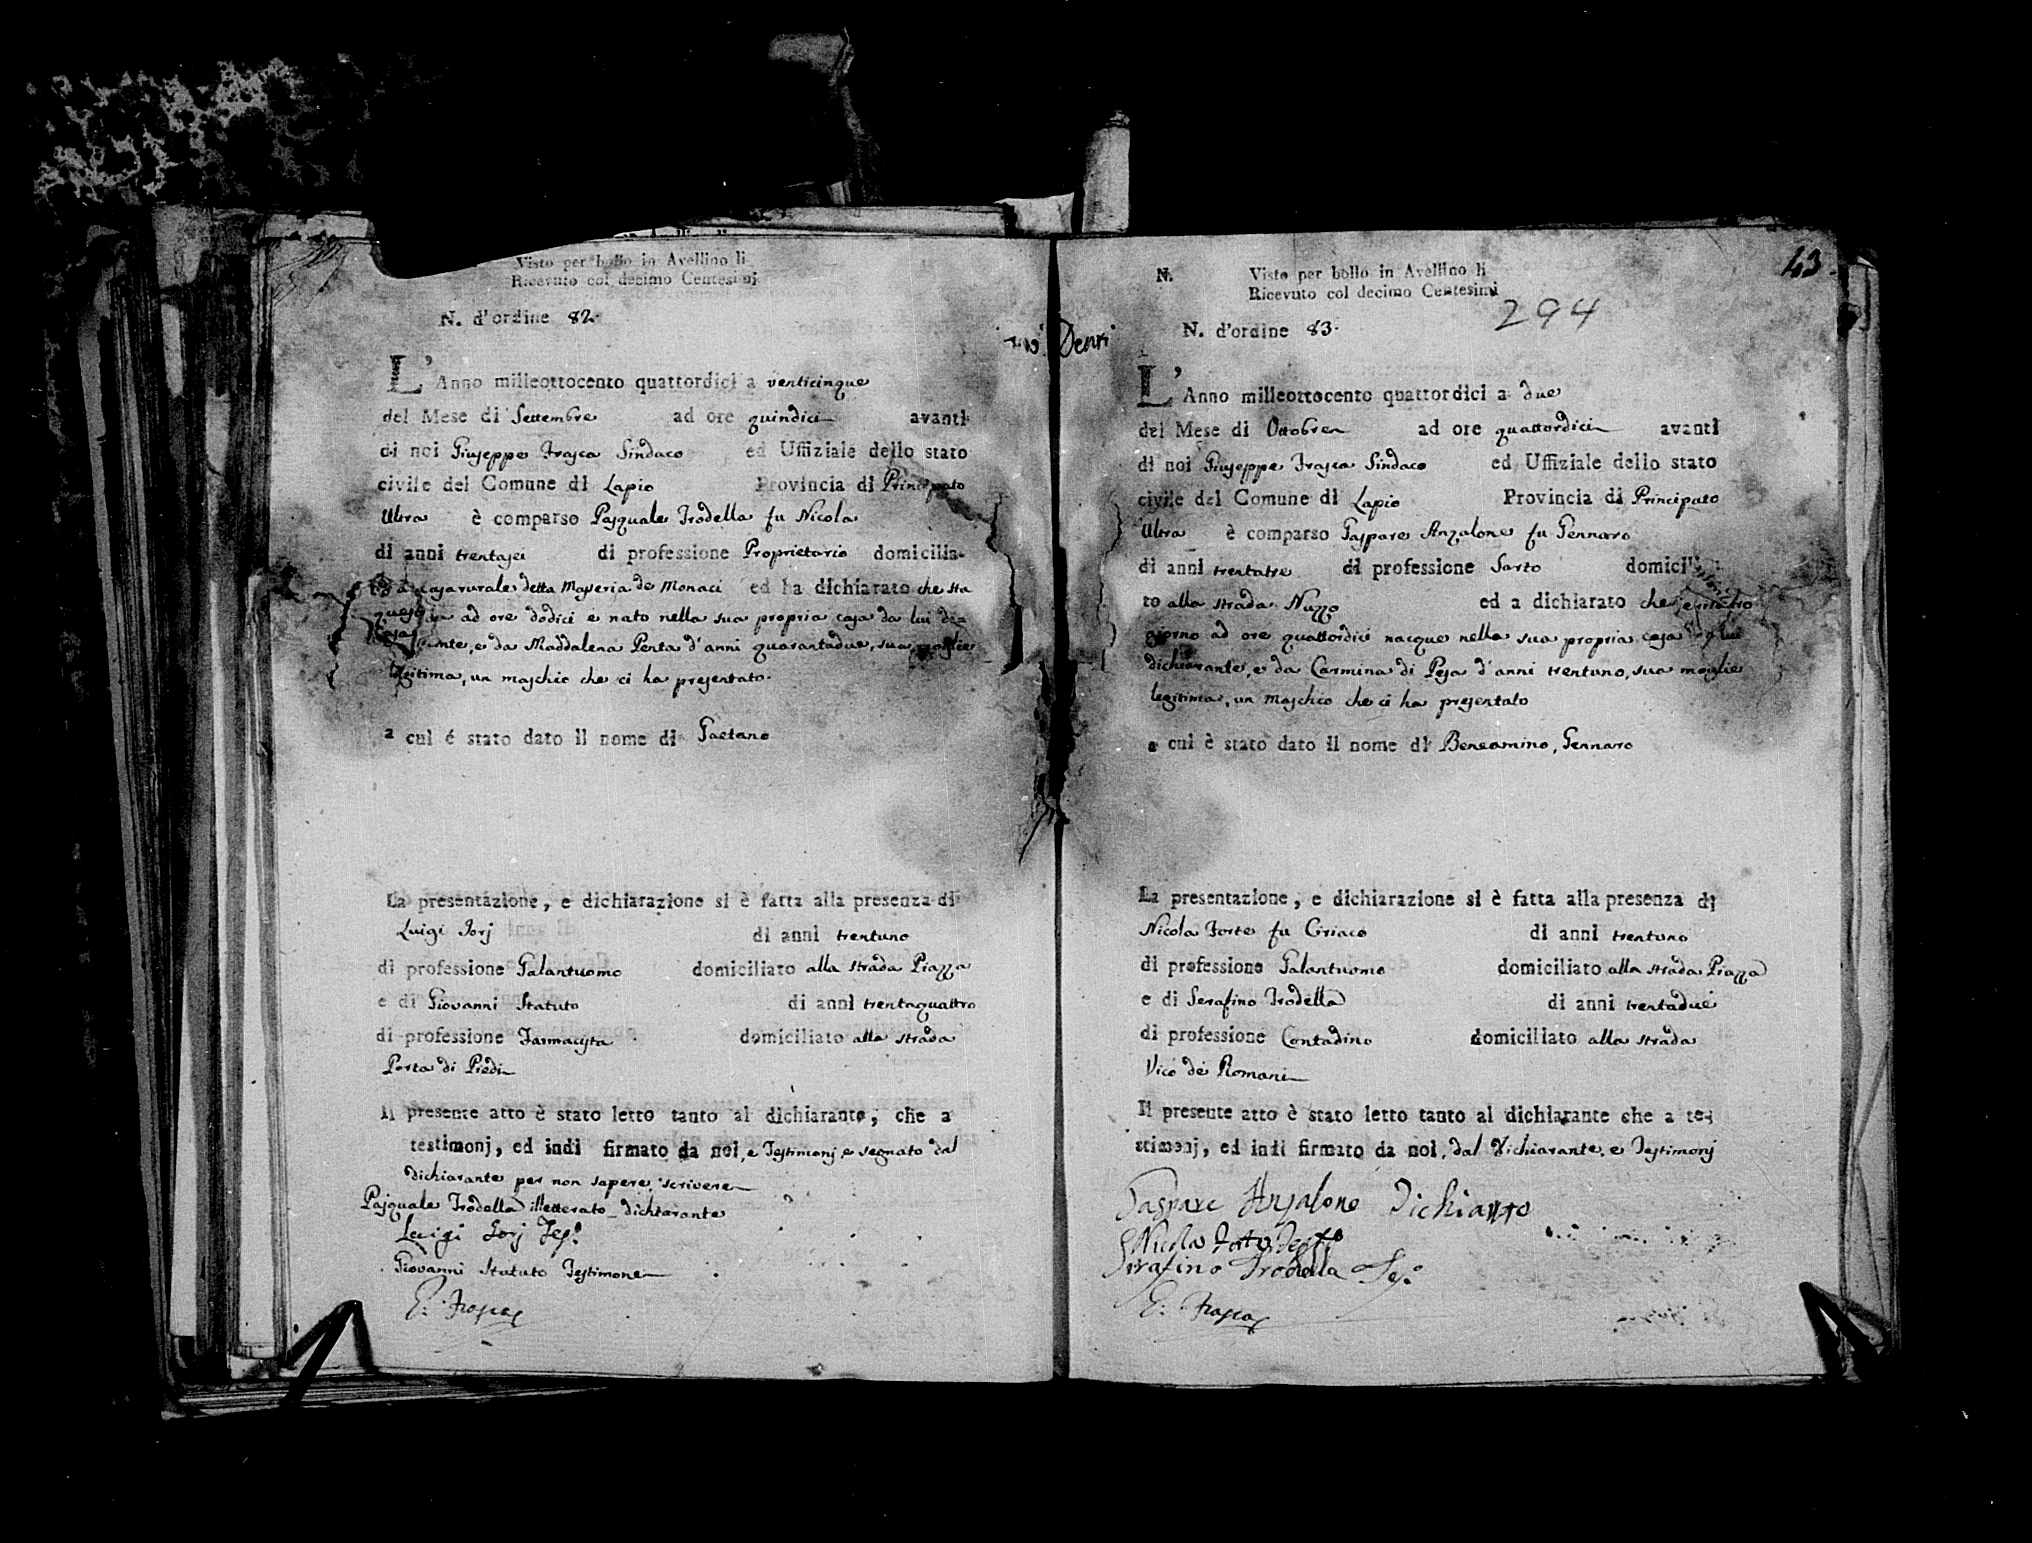 Visto per bollo in Avellino li
Ricevuto col decimo Centesimi
N. d'ordine 82.
L'Anno milleottocento quattordici a venticinque
del Mese di Settembre ad ore quindici avanti
di noi Giuseppe Frasca Sindaco ed Uffiziale dello stato
civile del Comune di Lapio Provincia di Principato
Ultra è comparso Pasquale Trodella fu Nicola
di anni trentasei di professione Proprietario domicilia-
casa rurale detta Masseria de Monaci ed ha dichiarato che sta
ad ore dodici e nato nella sua propria casa da lui di-
e da Maddalena Penta d'anni quarantadue, sua moglie
legitima, un maschio che ci ha presentato.
a cui é stato dato il nome di Gaetano
La presentazione, e dichiarazione si è fatta alla presenza di
Luigi Jorj di anni trentuno
di professione Galantuomo domiciliato alla strada Piazza
e di Giovanni Statuto di anni trentaquattro
di professione Farmacista domiciliato alla strada
Porta di Piedi
Il presente atto è stato letto tanto al dichiarante, che a
testimonj, ed indi firmato da noi, e Testimonj e segnato dal
dichiarante per non sapere scrivere
Pasquale Trodella illetterato dichiarante
Luigi Jorj Tes.
Giovanni Statuto Testimone
G. Frasca
43
N. Visto per bollo in Avellino li
Ricevuto col decimo Centesimi
294
N. d'ordine 83.
L'Anno milleottocento quattordici a due
del Mese di Ottobre ad ore quattordici avanti
di noi Giuseppe Frasca Sindaco ed Uffiziale dello stato
civile del Comune di Lapio Provincia di Principato
Ultra è comparso Gaspare Anzalone fu Gennaro
di anni trentatre di professione Sarto domici
to alla strada Nuzzo ed a dichiarato che
giorno ad ore quattordici nacque nella sua propria casa da lui
dichiarante, e da Carmina di Pesa d'anni trentuno, sua moglie
legitima, un maschio che ci ha presentato
a cui è stato dato il nome di Beneamino, Gennaro
La presentazione, e dichiarazione si è fatta alla presenza di
Nicola Forte fu Ciriaco di anni trentuno
di professione Galantuomo domiciliato alla strada Piazza
e di Serafino Trodella di anni trentadue
di professione Contadino domiciliato alla strada
Vico de Romani
Il presente atto è stato letto tanto al dichiarante che a te-
stimonj, ed indi firmato da noi, dal Dichiarante, e Testimonj
Gaspare Anzalone Dichiarto
Nicola Forte
Serafino Trodella Tes.
G. Frasca